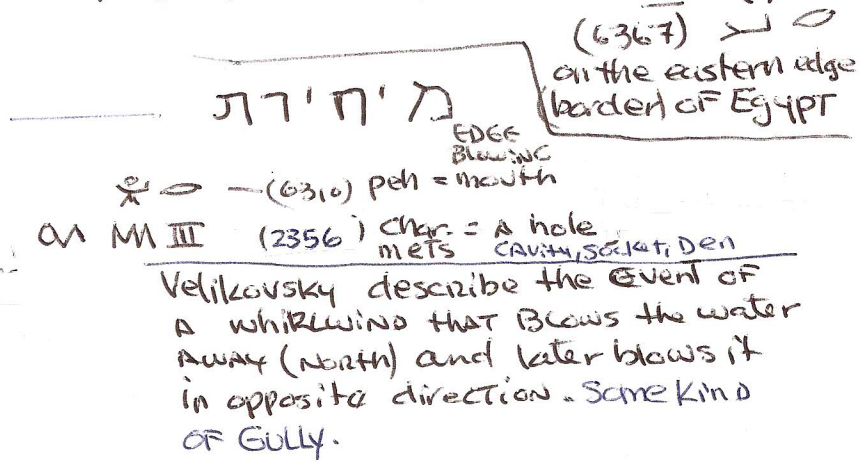 (6367)
on the eastern edge
(border) of EgypT
מ י ח י ר ת
EDGE
BlowiNG
—(6310) peh = mouth
III (2356) char. = A hole
meTs CAviTy, Socket, Den
Velikovsky describe the Event of
A whiRLwiND thAT BLows the water
AwAy (NoRth) and later blows it
in opposite direcTion. Some KinD
oF GuLLy.